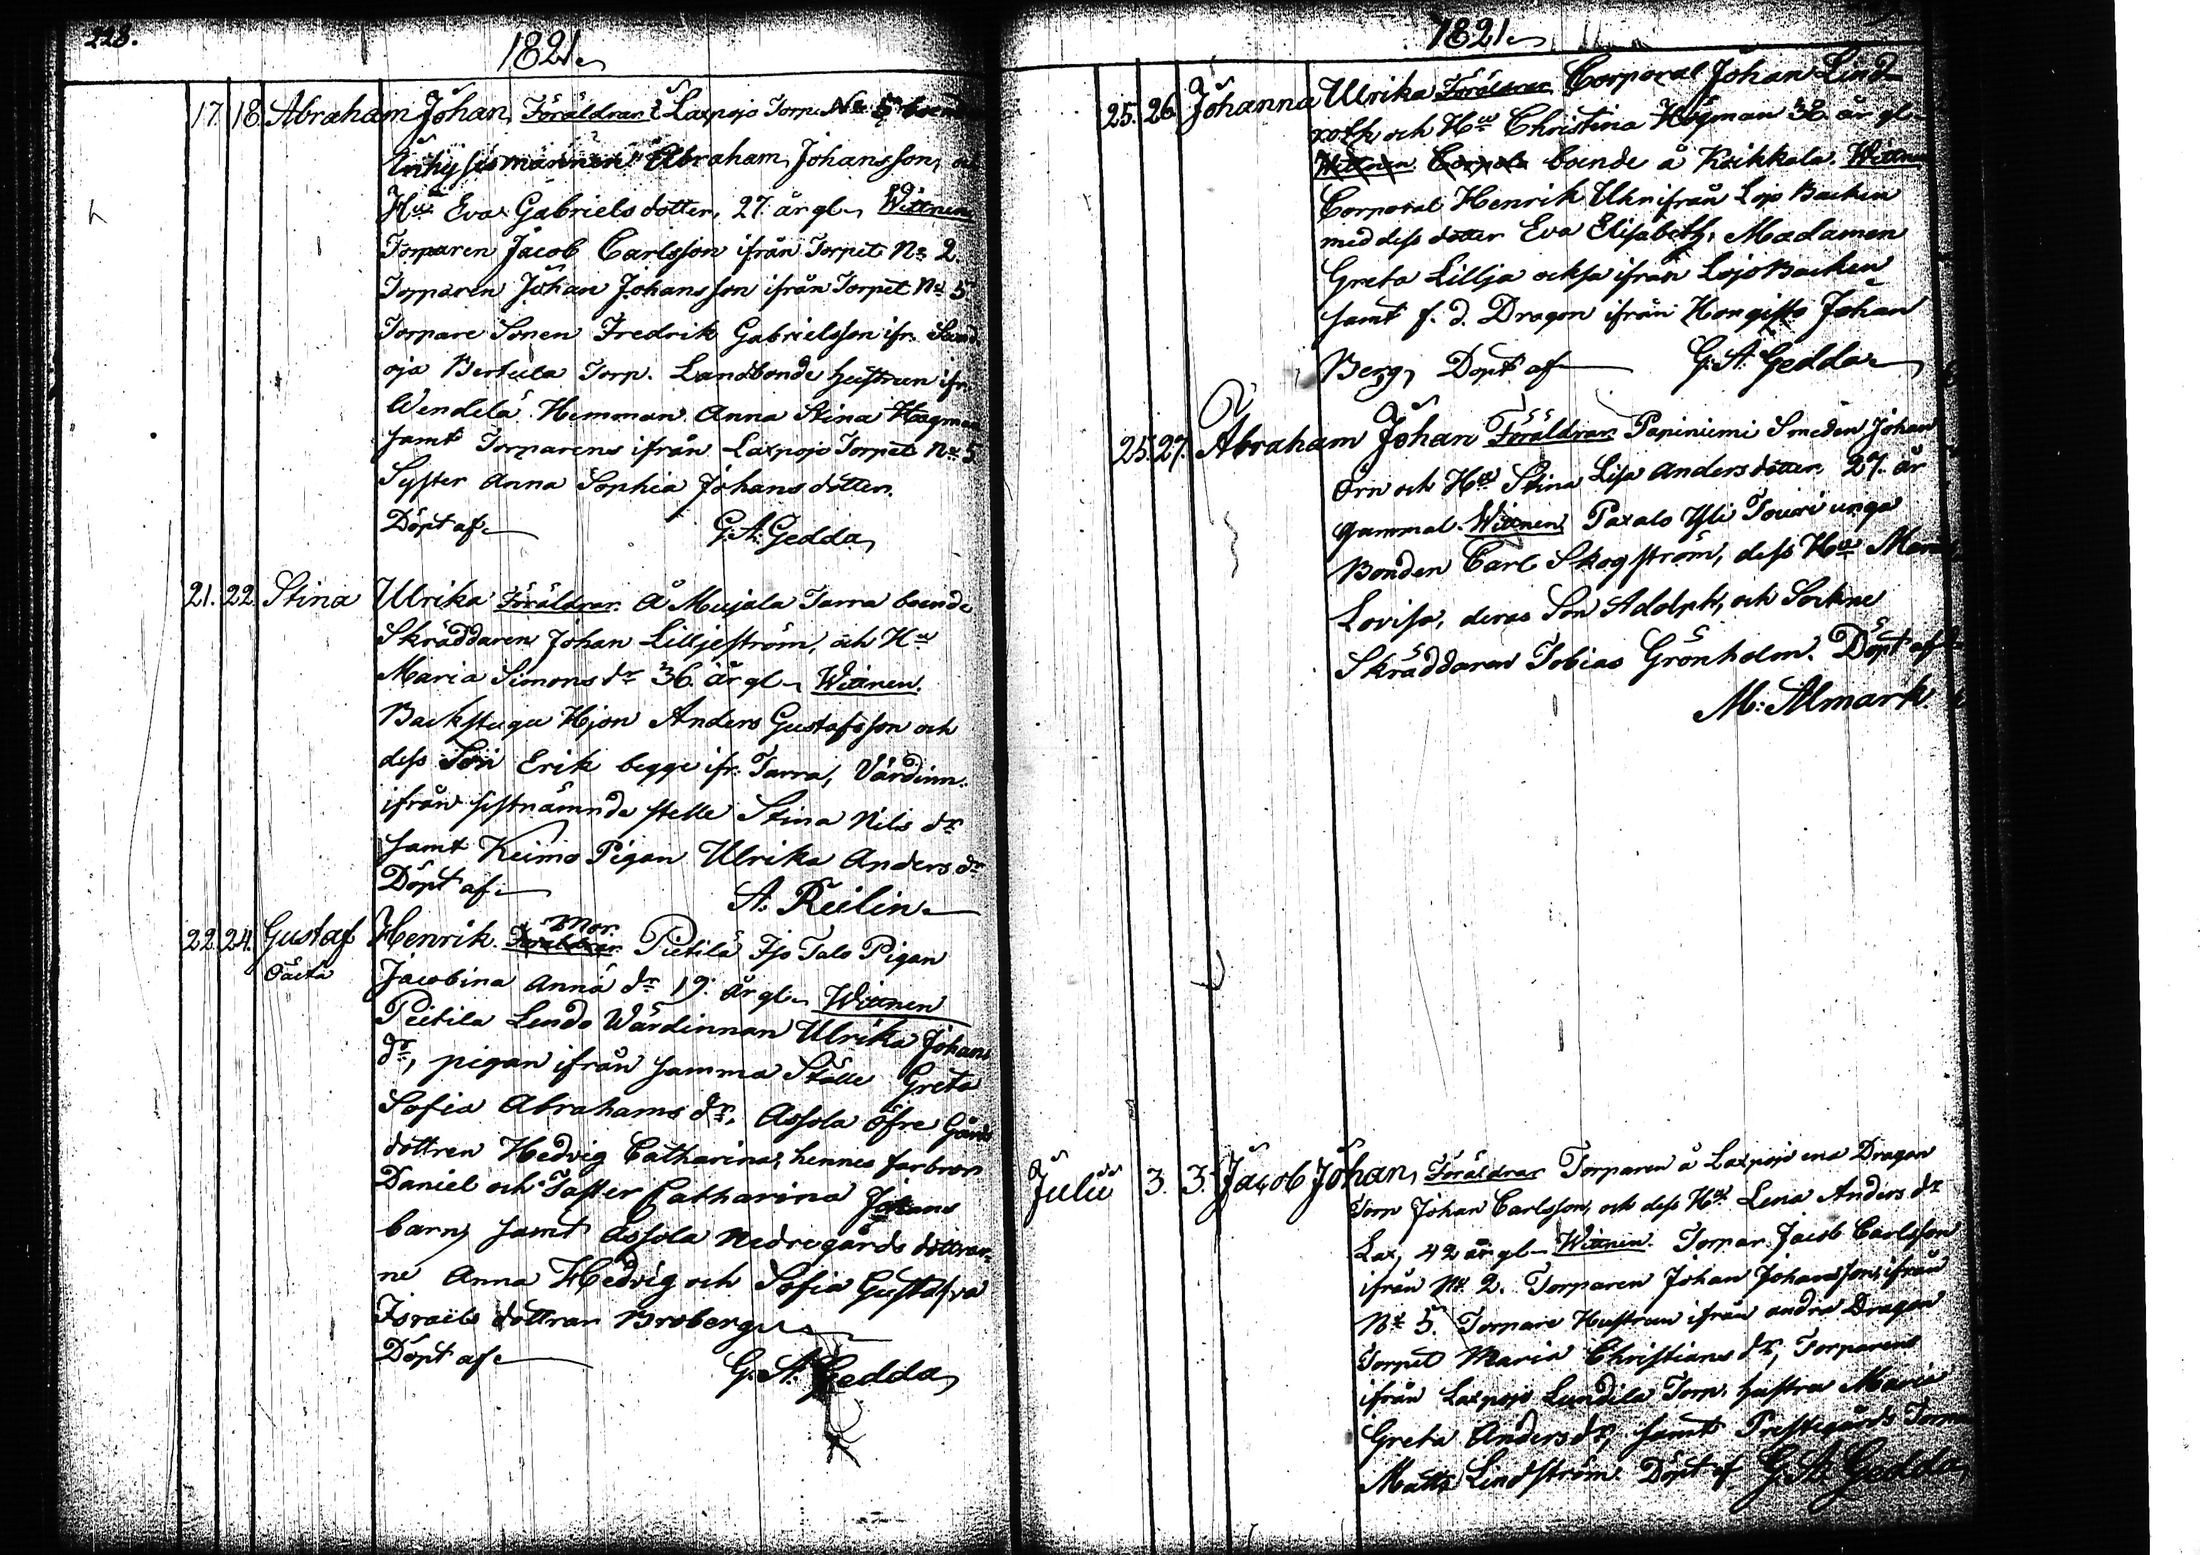 228.
1821.
17. 18. Abraham Johan, Föräldrar: Laxpojo Torp No 5 boende
Inhysesmannen Abraham Johansson, och
Hu Eva Gabrielsdotter, 27. år gl. Wittnen
Torparen Jacob Carlsson ifrån Torpet No 2.
Torparen Johan Johansson ifrån Torpet No 5.
Torpare Sonen Fredrik Gabrielsson ifr.
oja Bertula Torp. Landbonde hustrun ifr.
Wendelä Hemman Anna Stina Hagman
samt Torparens ifrån Laxpojo Torpet No 5
Syster Anna Sophia Johansdotter.
Döpt af G. A. Gedda
21. 22. Stina Ulrika Föräldrar. Å Mujala Tarra boende
Skräddaren Johan Lilljeström, och Hu
Maria Simons dr 36. år gl. Wittnen.
Backstugu Hjon Anders Gustafsson och
dess Son Erik begge ifr. Tarra, Värdinn.
ifrån sistnämnde stelle Stina Nils dr
samt Keimo Pigan Ulrika Anders dr
Döpt af A. Reilin
22. 24. Gustaf Henrik. Föräldrar Mor. Pietilä Iso Talo Pigan
Oäcta
Jacobina Anna dr 19. år gl. Wittnen
Peitila Lendo Wärdinnan Ulrika Johans
dr, pigan ifrån samma Ställe Greta
Sofia Abrahams dr, Assola Öfre Gårds
dottren Hedvig Catharina, hennes farbror
Daniel och Faster Catharina Johans
barn, samt Assola Nedregårds döttrar-
ne Anna Hedvig och Sofia Gustafva
Israels döttrar Broberg
Döpt af G. A. Gedda
1821.
25. 26. Johanna Ulrika Föräldrar Corporal Johan Lind-
roth och Hu Christina Högman 38 år gl.
Wittnen Corpola boende å Koikkala. Wittnen
Corporal Henrik Uhr ifrån Lojo Backen
med dess dotter Eva Elisabeth, Madamen
Greta Lillja också ifrån Lojo Backen
samt f. d. Dragon ifrån Hongisto Johan
Berg, Döpt af G. A. Gedda
25. 27. Abraham Johan Föräldrar Papiniemi Smeden Johan
Örn och Hu Stina Lisa Andersdotter 27. år
gammal. Wittnen Paxalo Yli Touri unga
Bonden Carl Skogström, dess Hu Maria
Lovisa, deras Son Adolph, och Sockne
Skräddaren Tobias Grönholm. Döpt af
M. Almark.
Julii 3. 3. Jacob Johan, Föräldrar Torparen å Laxpojo ena Dragon
Torp Johan Carlsson, och dess Hu Lena Anders dr
Lax, 42 år gl. Wittnen. Torpar. Jacob Carlsson
ifrån No 2. Torparen Johan Johansson, ifrån
No 5. Torpare Hustrun ifrån andra Dragon
Torpet Maria Christians dr, Torparens
ifrån Laxpojo Lundila Torp. hustru Maria
Greta Anders dr, samt Prestegårds Torpar
Matts Lindström. Döpt af G. A. Gedda